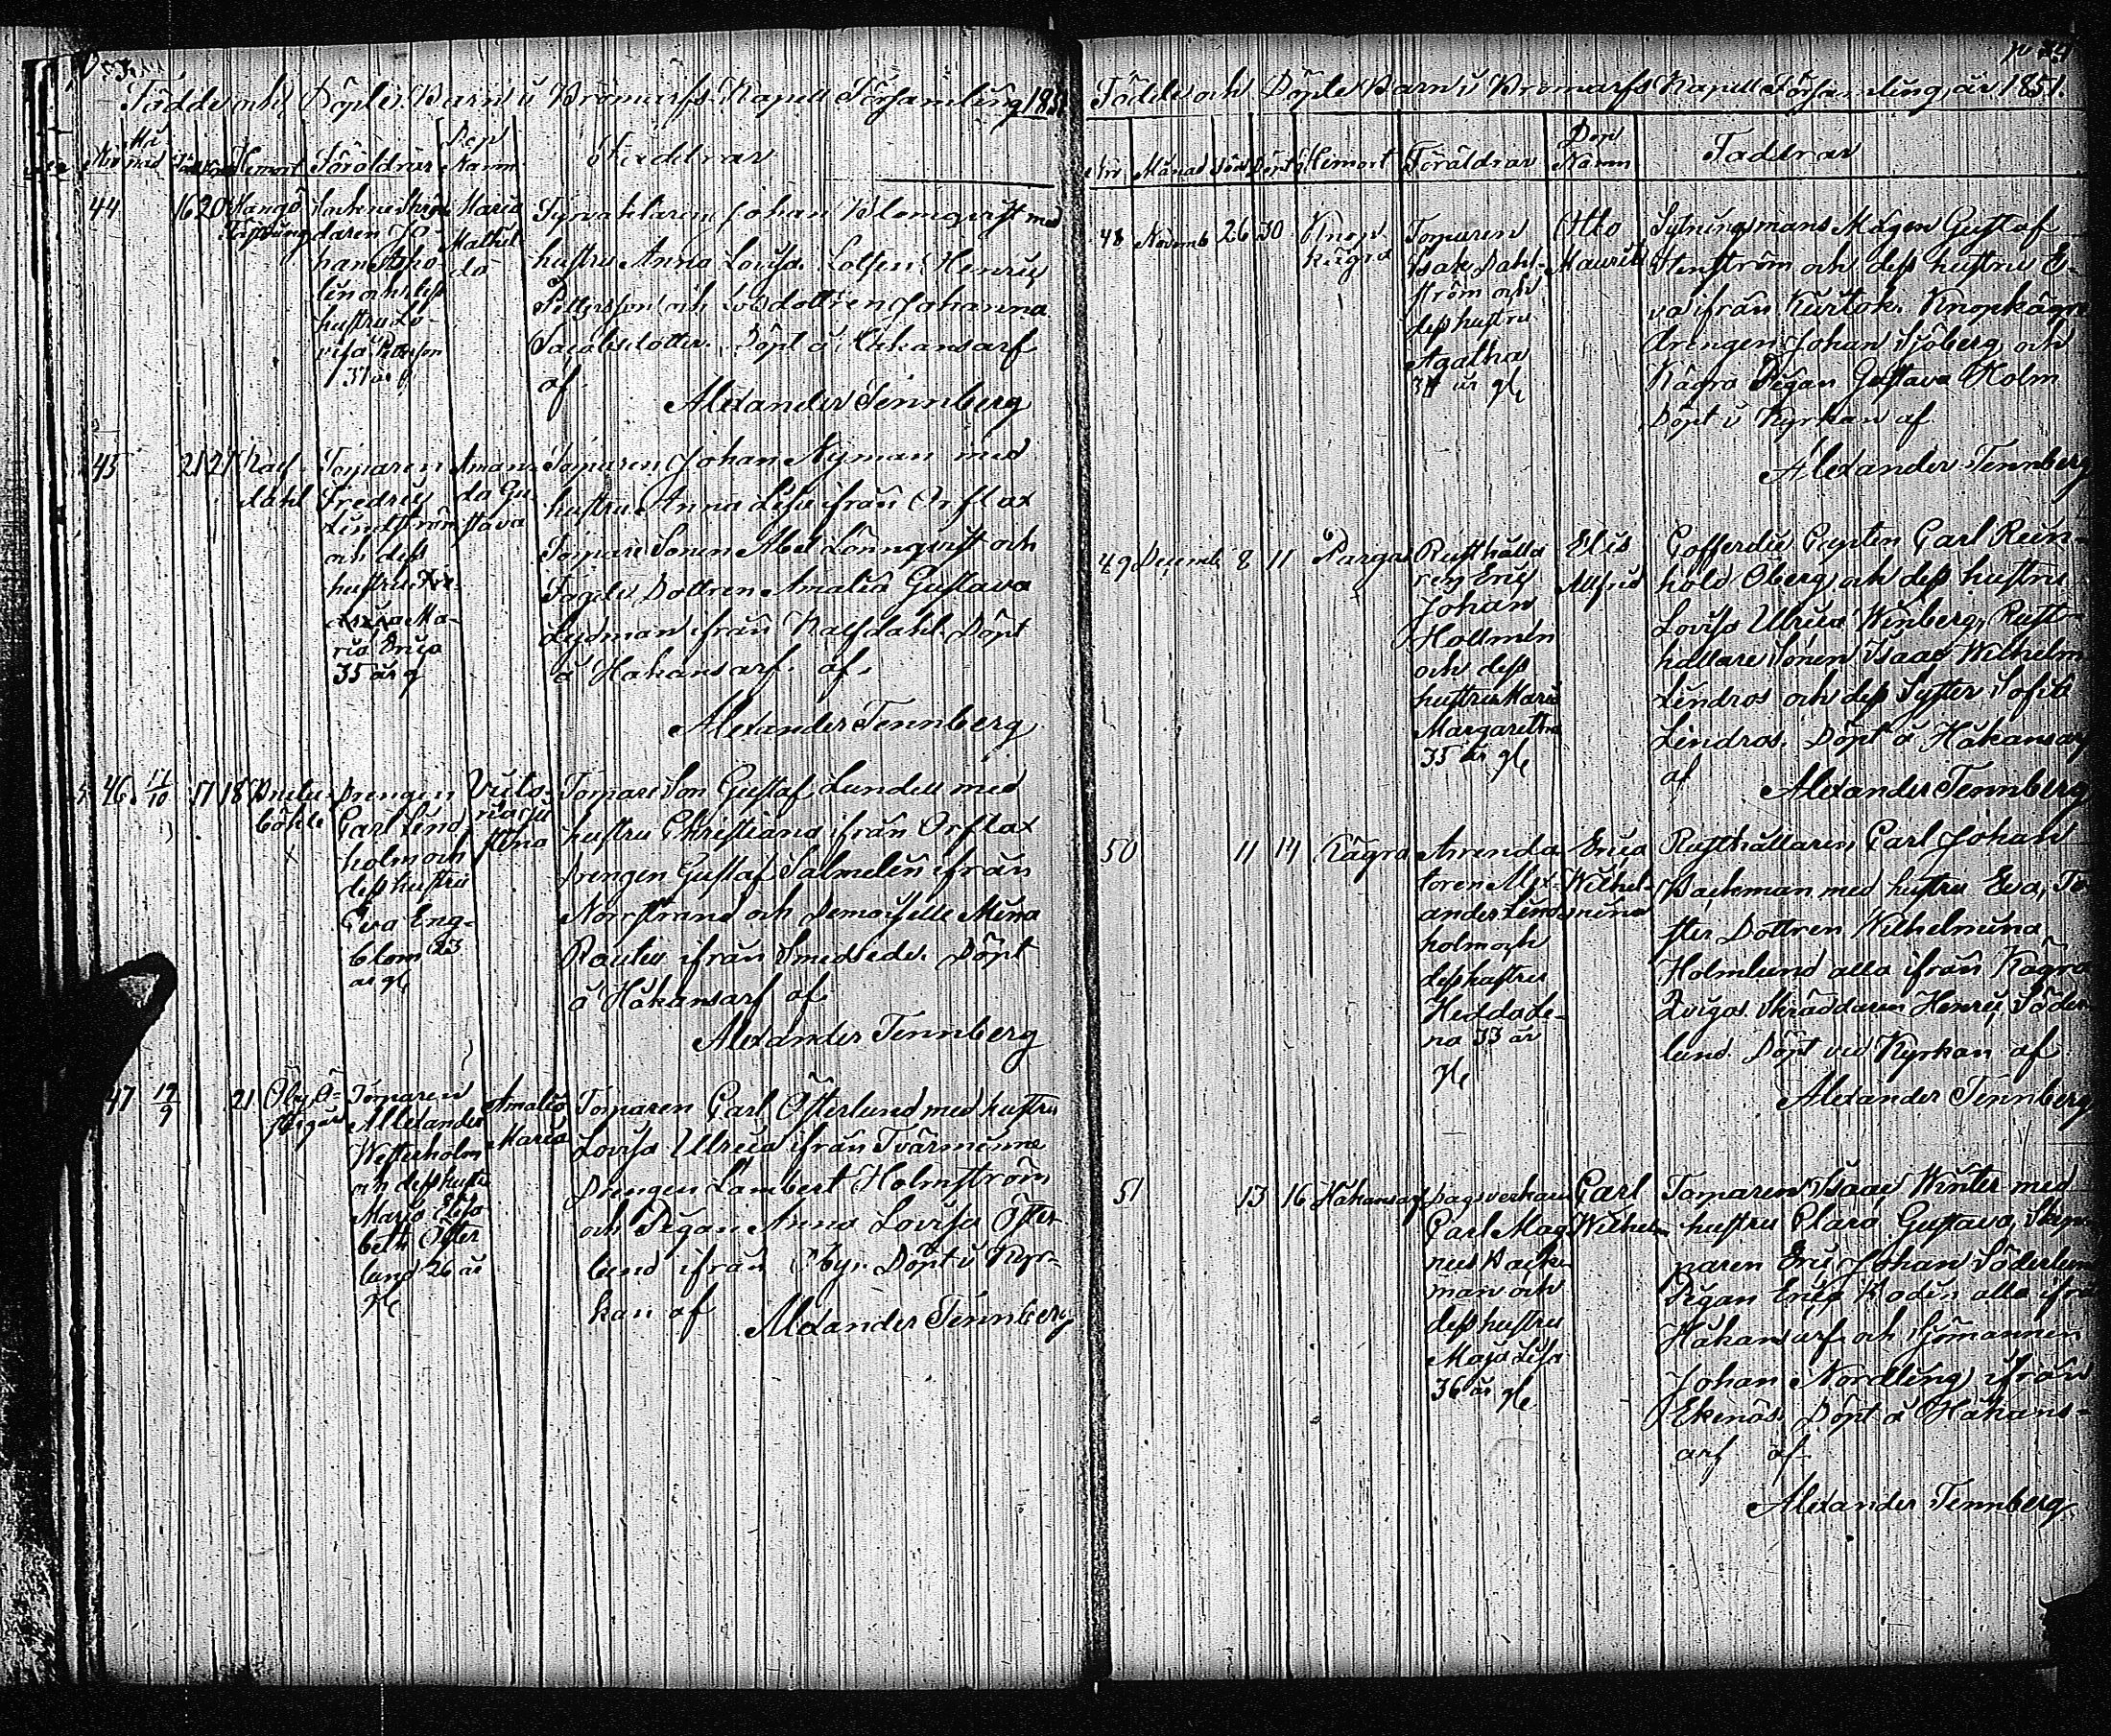 Födde och Döpte Barn i Bromarfs Kapell Församling 1851
Nro Månad Född Döpt Hemort Föräldrar Dop Namn Faddrar
44 16 20 Hangö Fästning
Sockneskräddaren Johan Asholin och dess hustru Lovisa Petterson 31 år g
Maria Mathilda
Fyrvaktaren Johan Blomqvist med
hustru Anna Lovisa. Lotsen Henric
Pettersson och Lots dottren Johanna
Jacobsdotter. Döpt å Håkansarf
af
Alexander Tennberg
45 21 21 Kalfdahl
Torparen Fredric Lindström och dess hustru Maria Erica 35 år g
Amanda Gustava
Torparen Johan Nyman med
hustru Anna Lisa ifrån Orflax
Torpare Sonen Abel Lönnqvist och
Dottren Amalia Gustava
Lydman ifrån Kalfdahl. Döpt
å Håkansarf. af.
Alexander Tennberg
46. 11/10 17 18
Drengen Carl Lindholm och dess hustru Eva Engblom 23 år gl
stina
Torpare Son Gustaf Lundell med
hustru Christiana ifrån Orflax
Drengen Gustaf Salmelin ifrån
Norrstrand och Demoiselle Mina
ifrån Smedsede. Döpt
å Håkansarf af.
Alexander Tennberg
47 12/9 21 Öby
Torparen Alexander Westerholm och dess hustru Maja Elisabeth Österlund 26 år gl
Amalia Maria
Torparen Carl Österlund med hustru
Lovisa Ulrica ifrån Tvärminne
Drengen Lambert Holmström
och Pigan Anna Lovisa Öster-
lund ifrån Öby. Döpt i Kyr-
kan af Alexander Tennberg
Födde och Döpte Barn i Bromarfs Kapell Församling, år 1851.
Nro Månad Född Döpt Hemort Föräldrar Dop Namn Faddrar
48 Novemb 26 30 Knopkägra
Torparen Isak Dahlström och dess hustru Agatha 34 år gl
Otto Maurits
Sytningsmans Mågen Gustaf
Stenström och dess hustru E-
va ifrån Knopkägra
drengen Johan Sjöberg och
Kägra Pigan Gustava Holm
Döpt i Kyrkan af
Alexander Tennberg
49 Decemb 8 11 Parga
Rusthållaren Eric Johan Hollmén och dess hustru Maria Margaretha 35 år gl
Elis Alfrid
Cofferdie Capten Carl Rein-
hold Öberg och dess hustru
Lovisa Ulrica Winberg, Rust-
hållare Sonen Isaac Wilhelm
Lindros och dess Syster Sofia
Lindros. Döpt å Håkansarf
af
Alexander Tennberg
50 11 14 Kägra
Arrendatoren Alexander Lindholm och dess hustru Hedda Lena 33 år gl
Erica Wilhelmina
Rusthållaren Carl Johan
Backman med hustru Eva, Fo-
ster Dottren Wilhelmina
Holmlund alla ifrån Kägra
Skräddaren Henric Söder-
lund Döpt vid Kyrkan af
Alexander Tennberg
51 13 16 Håkansarf
Dagsverkaren Carl Magnus Backman och dess hustru Maja Lisa 36 år gl
Carl Wilhelm
Torparen Isaac Winter med
hustru Clara Gustava, Skep-
paren Eric Johan Söderlund
Pigan Erica Bodin alla ifrån
Håkansarf och Sjömannen
Johan Nordling ifrån
Ekenäs. Döpt å Håkans-
arf af
Alexander Tennberg